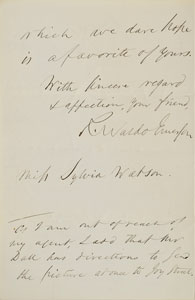 which we dare hope
is a favorite of yours.
With sincere regard
& affection, your friend
R. Waldo Emerson
Miss Sylvia Watson.
As I am out of reach of
my agent, I add that Mr
has directions to
the picture